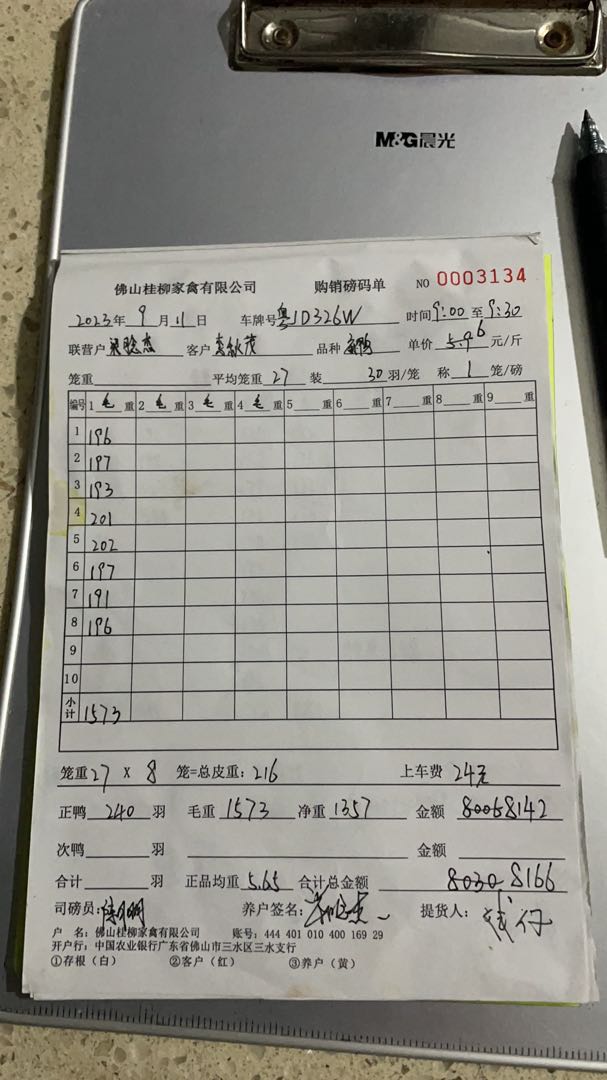 M&G晨光
佛山桂柳家禽有限公司 购销磅码单 NO 0003134
2023年 9月 11日 车牌号粤JD326W 时间 9:00 至 9:30
联营户 客户 品种 单价 5.96 元/斤
笼重 平均笼重 27 装 30 羽/笼 称 1 笼/磅
编号 1 毛 重 2 毛 重 3 毛 重 4 毛 重 5 重 6 重 7 重 8 重 9 重
1 196
2 197
3 193
4 201
5 202
6 197
7 191
8 196
9
10
小计 1573
笼重 27 X 8 笼=总皮重:216 上车费 24元
正鸭 240 羽 毛重 1573 净重 1357 金额 8142
次鸭 羽 金额
合计 羽 正品均重 5.65 合计总金额 8030 8166
司磅员: 养户签名: 提货人:
户 名:佛山桂柳家禽有限公司 账号:444 401 010 400 169 29
开户行:中国农业银行广东省佛山市三水区三水支行
①存根(白) ②客户(红) ③养户(黄)